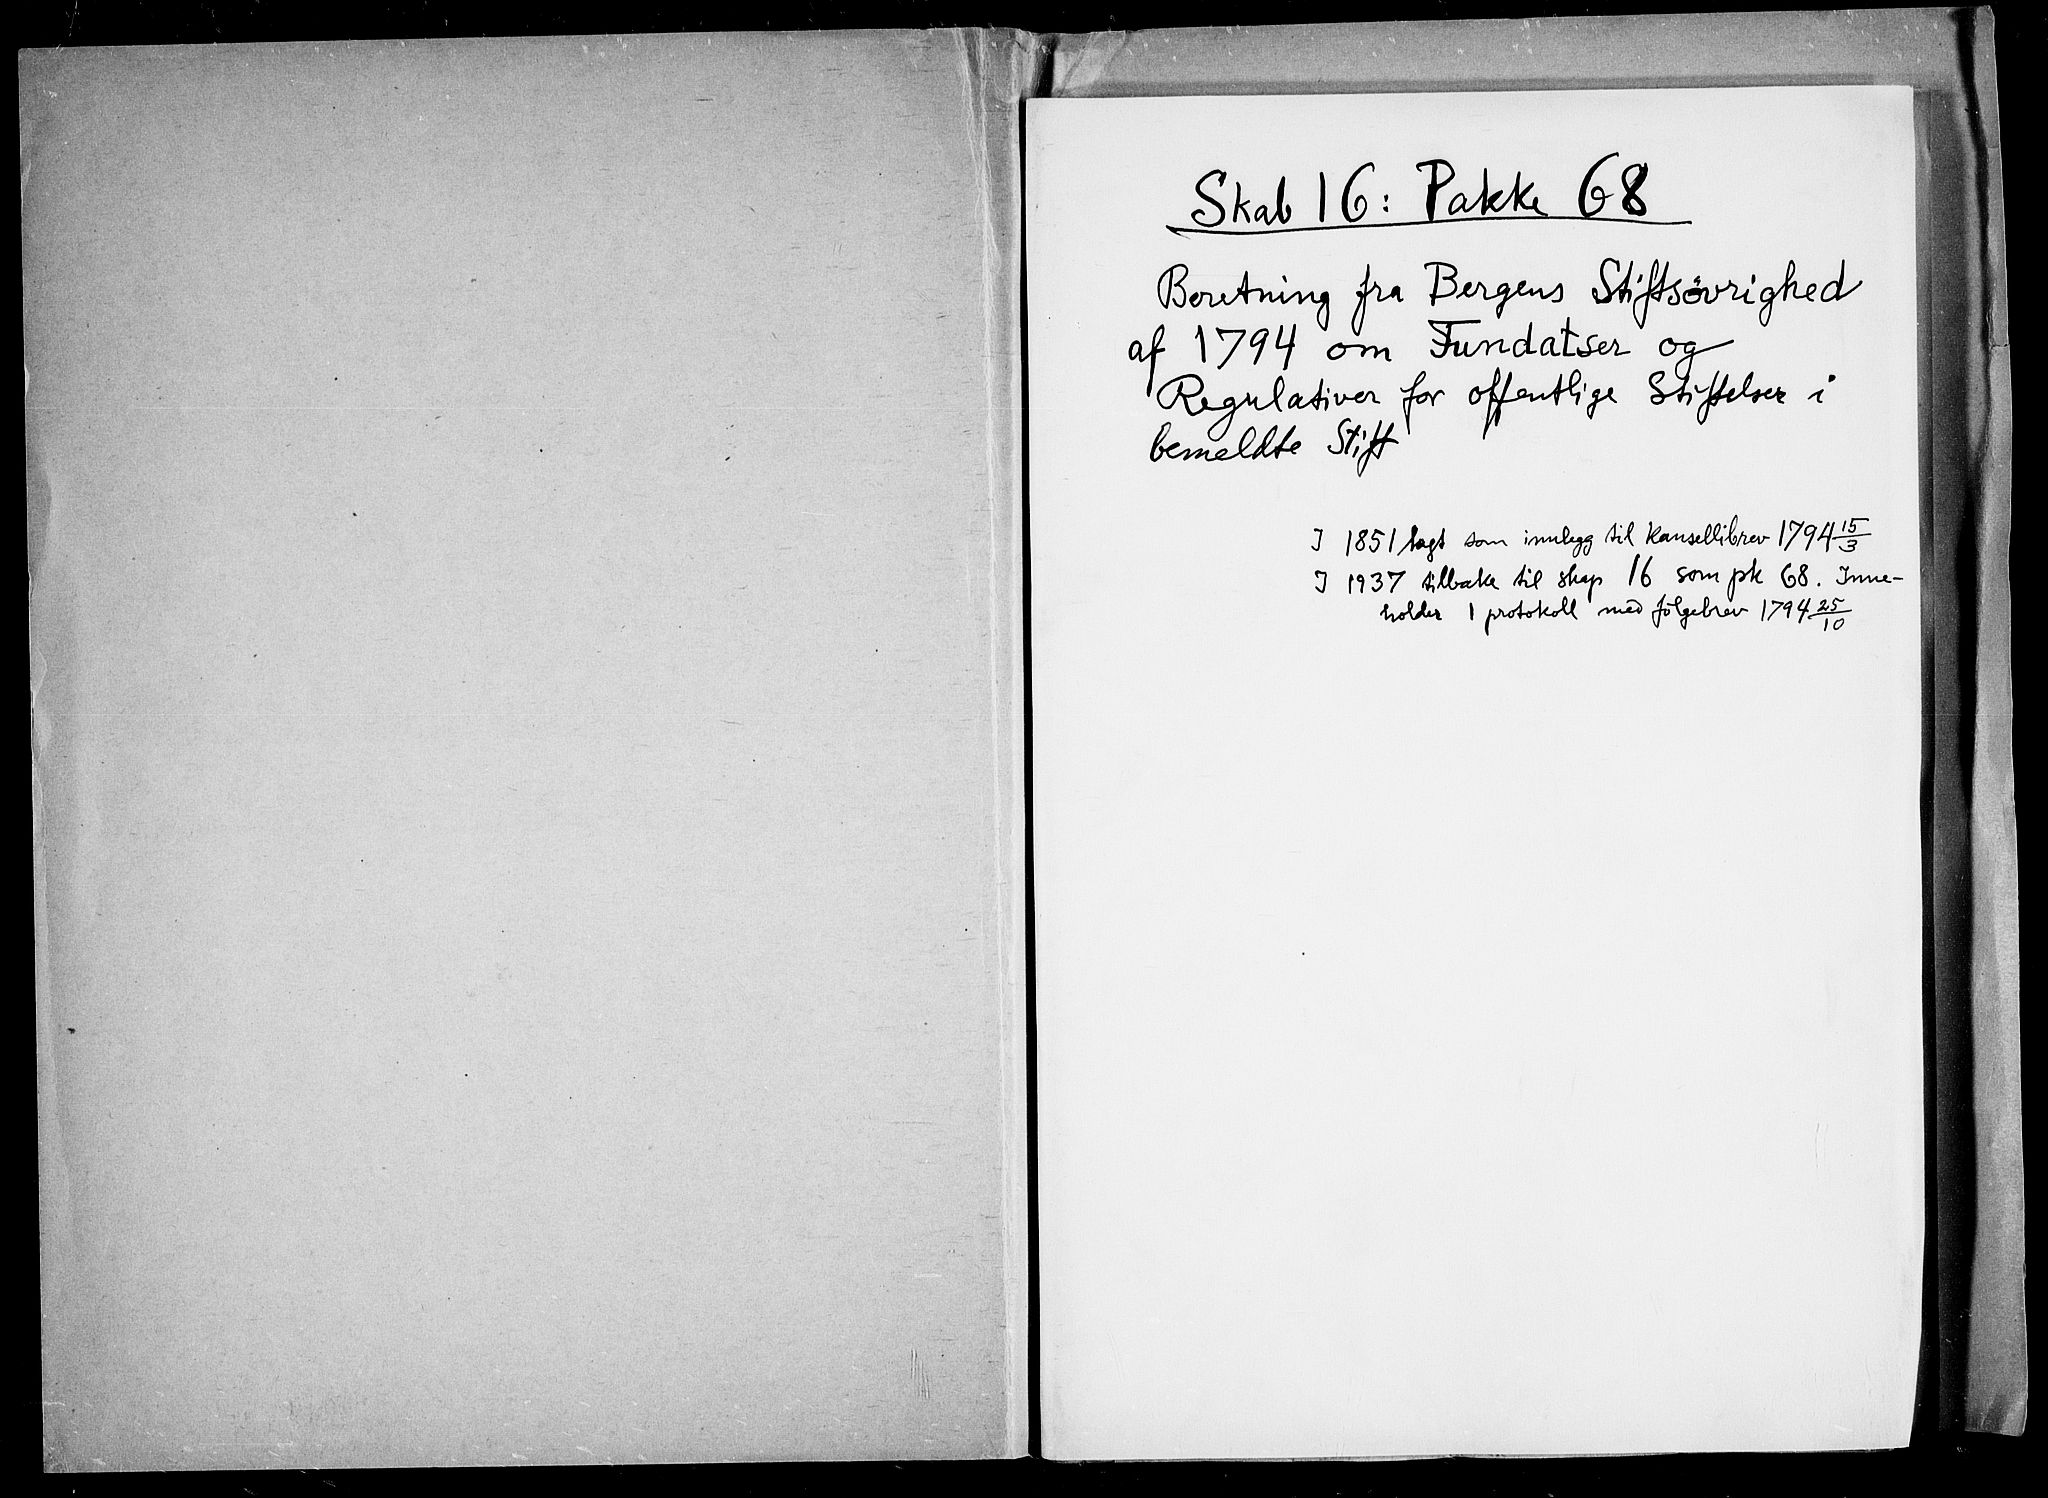 Skab 16: Pakke 68
Beretning fra Bergens Stiftsövrighed
af 1794 om Fundatser og
Regulativer for offentlige Stiftelser i
bemeldte Stift
I 1851 lagt som innlegg til kansellibrev 1794 15/3
I 1937 tilbake til skap 16 som pk 68. Inne-
holder 1 protokoll med følgebrev 1794 25/10